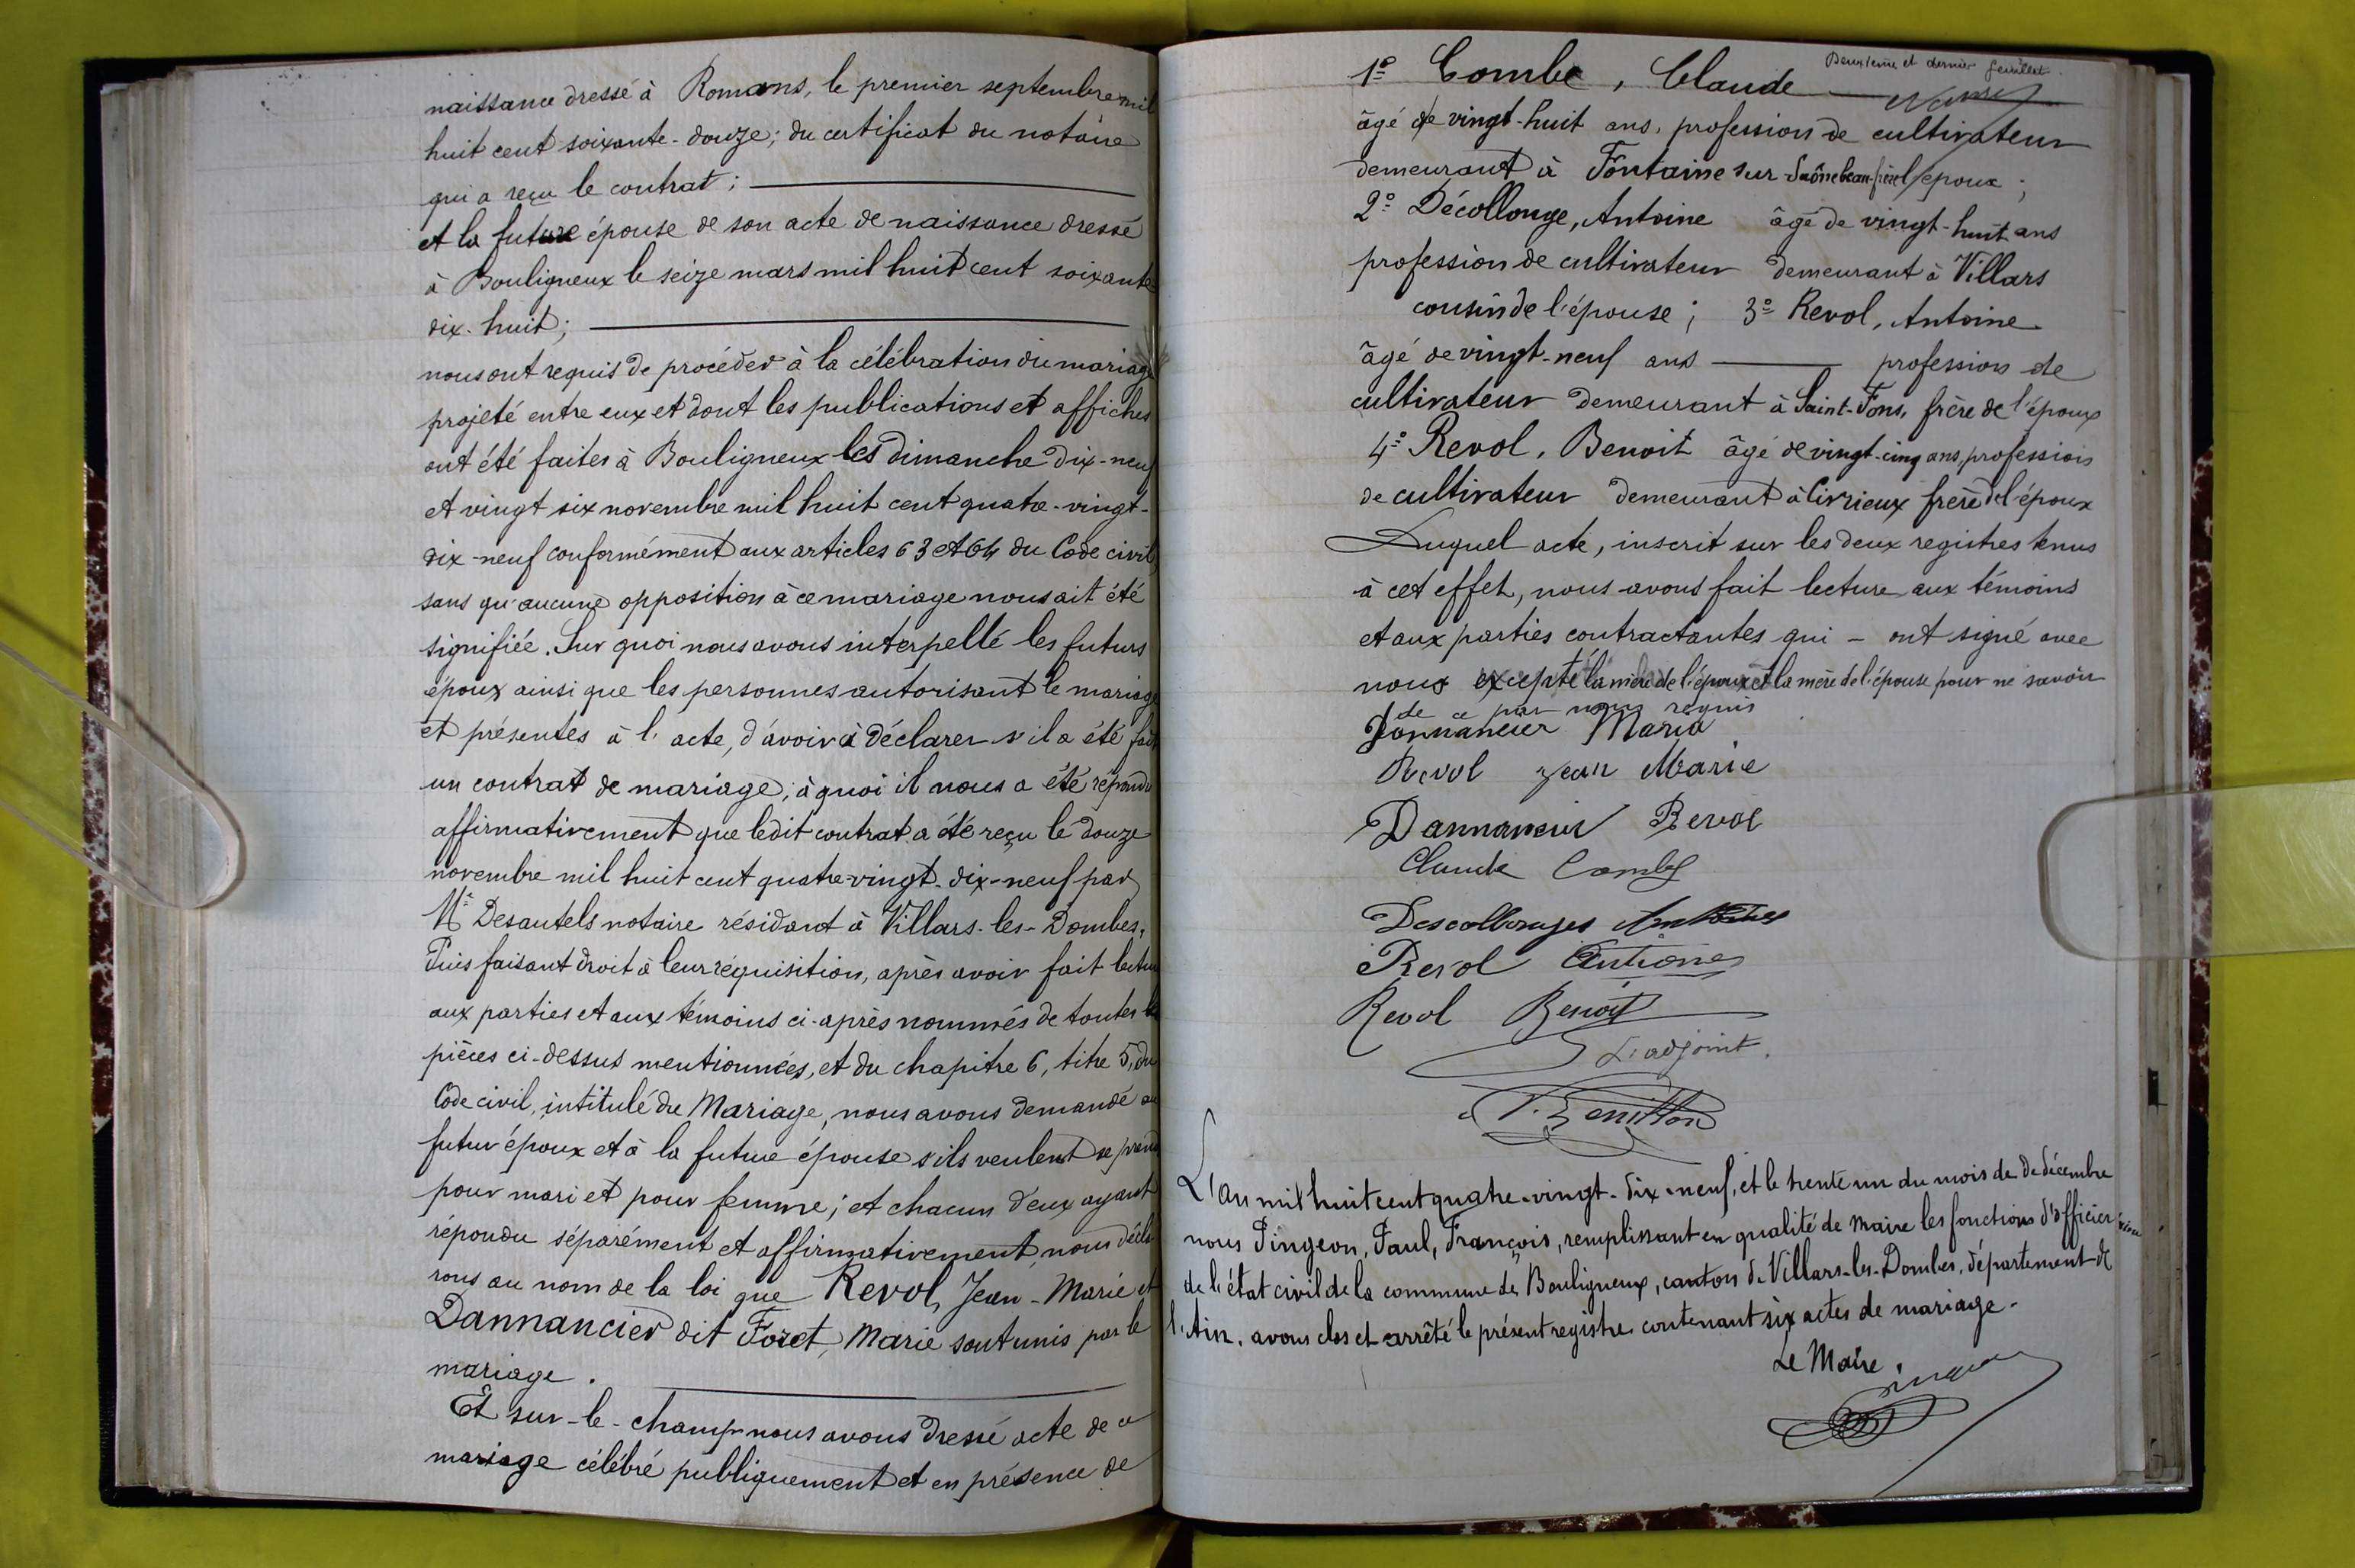 naissance dressé à Romans, le premier septembre mil
huit cent soixante-douze; du certificat du notaire
qui a reçu le contrat;
et la future épouse de son acte de naissance dressé
à Bouligneux le seize mars mil huit cent soixante
dix-huit;
nous ont requis de procéder à la célébration du mariage
projeté entre eux et dont les publications et affiches
ont été faites à Bouligneux les dimanche dix-neuf
et vingt six novembre mil huit cent quatre-vingt-
dix-neuf conformément aux articles 63 et 64 du Code civil
sans qu'aucune opposition à ce mariage nous ait été
signifiée. Sur quoi nous avons interpellé les futurs
époux ainsi que les personnes autorisant le mariage
et présentes à l'acte, d'avoir à déclarer s'il a été fait
un contrat de mariage; à quoi il nous a été répondu
affirmativement que ledit contrat a été reçu le douze
novembre mil huit cent quatre-vingt-dix-neuf par
Me Desautels notaire résidant à Villars-les-Dombes.
Puis faisant droit à leur réquisition, après avoir fait lecture
aux parties et aux témoins ci-après nommés de toutes les
pièces ci-dessus mentionnées, et du chapitre 6, titre 5, du
Code civil, intitulé du Mariage, nous avons demandé au
futur époux et à la future épouse s'ils veulent se prend
pour mari et pour femme; et chacun d'eux ayant
répondu séparément et affirmativement, nous décla
rons au nom de la loi que Revol, Jean-Marie et
Dannancier dit Foret, Marie sont unis par le
mariage.
Et sur-le-champ nous avons dressé acte de ce
mariage célébré publiquement et en présence de
Deuxième et dernier feuillet
1° Combe, Claude
âgé de vingt-huit ans, profession de cultivateur
demeurant à Fontaine sur-Saône beau-frère l'époux;
2° Décollonge, Antoine âgé de vingt-huit ans
profession de cultivateur demeurant à Villars
cousin de l'épouse; 3° Revol, Antoine
âgé de vingt-neuf ans profession de
cultivateur demeurant à Saint-Fons, frère de l'époux
4° Revol, Benoit âgé de vingt-cinq ans, profession
de cultivateur demeurant à Civrieux frère de l'époux
Duquel acte, inscrit sur les deux registres tenus
à cet effet, nous avons fait lecture aux témoins
et aux parties contractantes qui - ont signé avec
nous excepté la mère de l'époux et la mère de l'épouse pour ne savoir
de ce par nous requis
Dannancier Maria
Revol Jean Marie
Dannancier Revol
Claude Combe
Descollonges Antoine
Revol Antione
Revol Benoit
L'adjoint.
L'an mil huit cent quatre-vingt-dix-neuf, et le trente un du mois de de décembre
nous Pingeon, Paul, François, remplissant en qualité de maire les fonctions d'officier
de l'état civil de la commune de Bouligneux, canton de Villars-les-Dombes, département de
l'Ain, avons clos et arrêté le présent registre contenant six actes de mariage.
Le Maire,
Pingeon